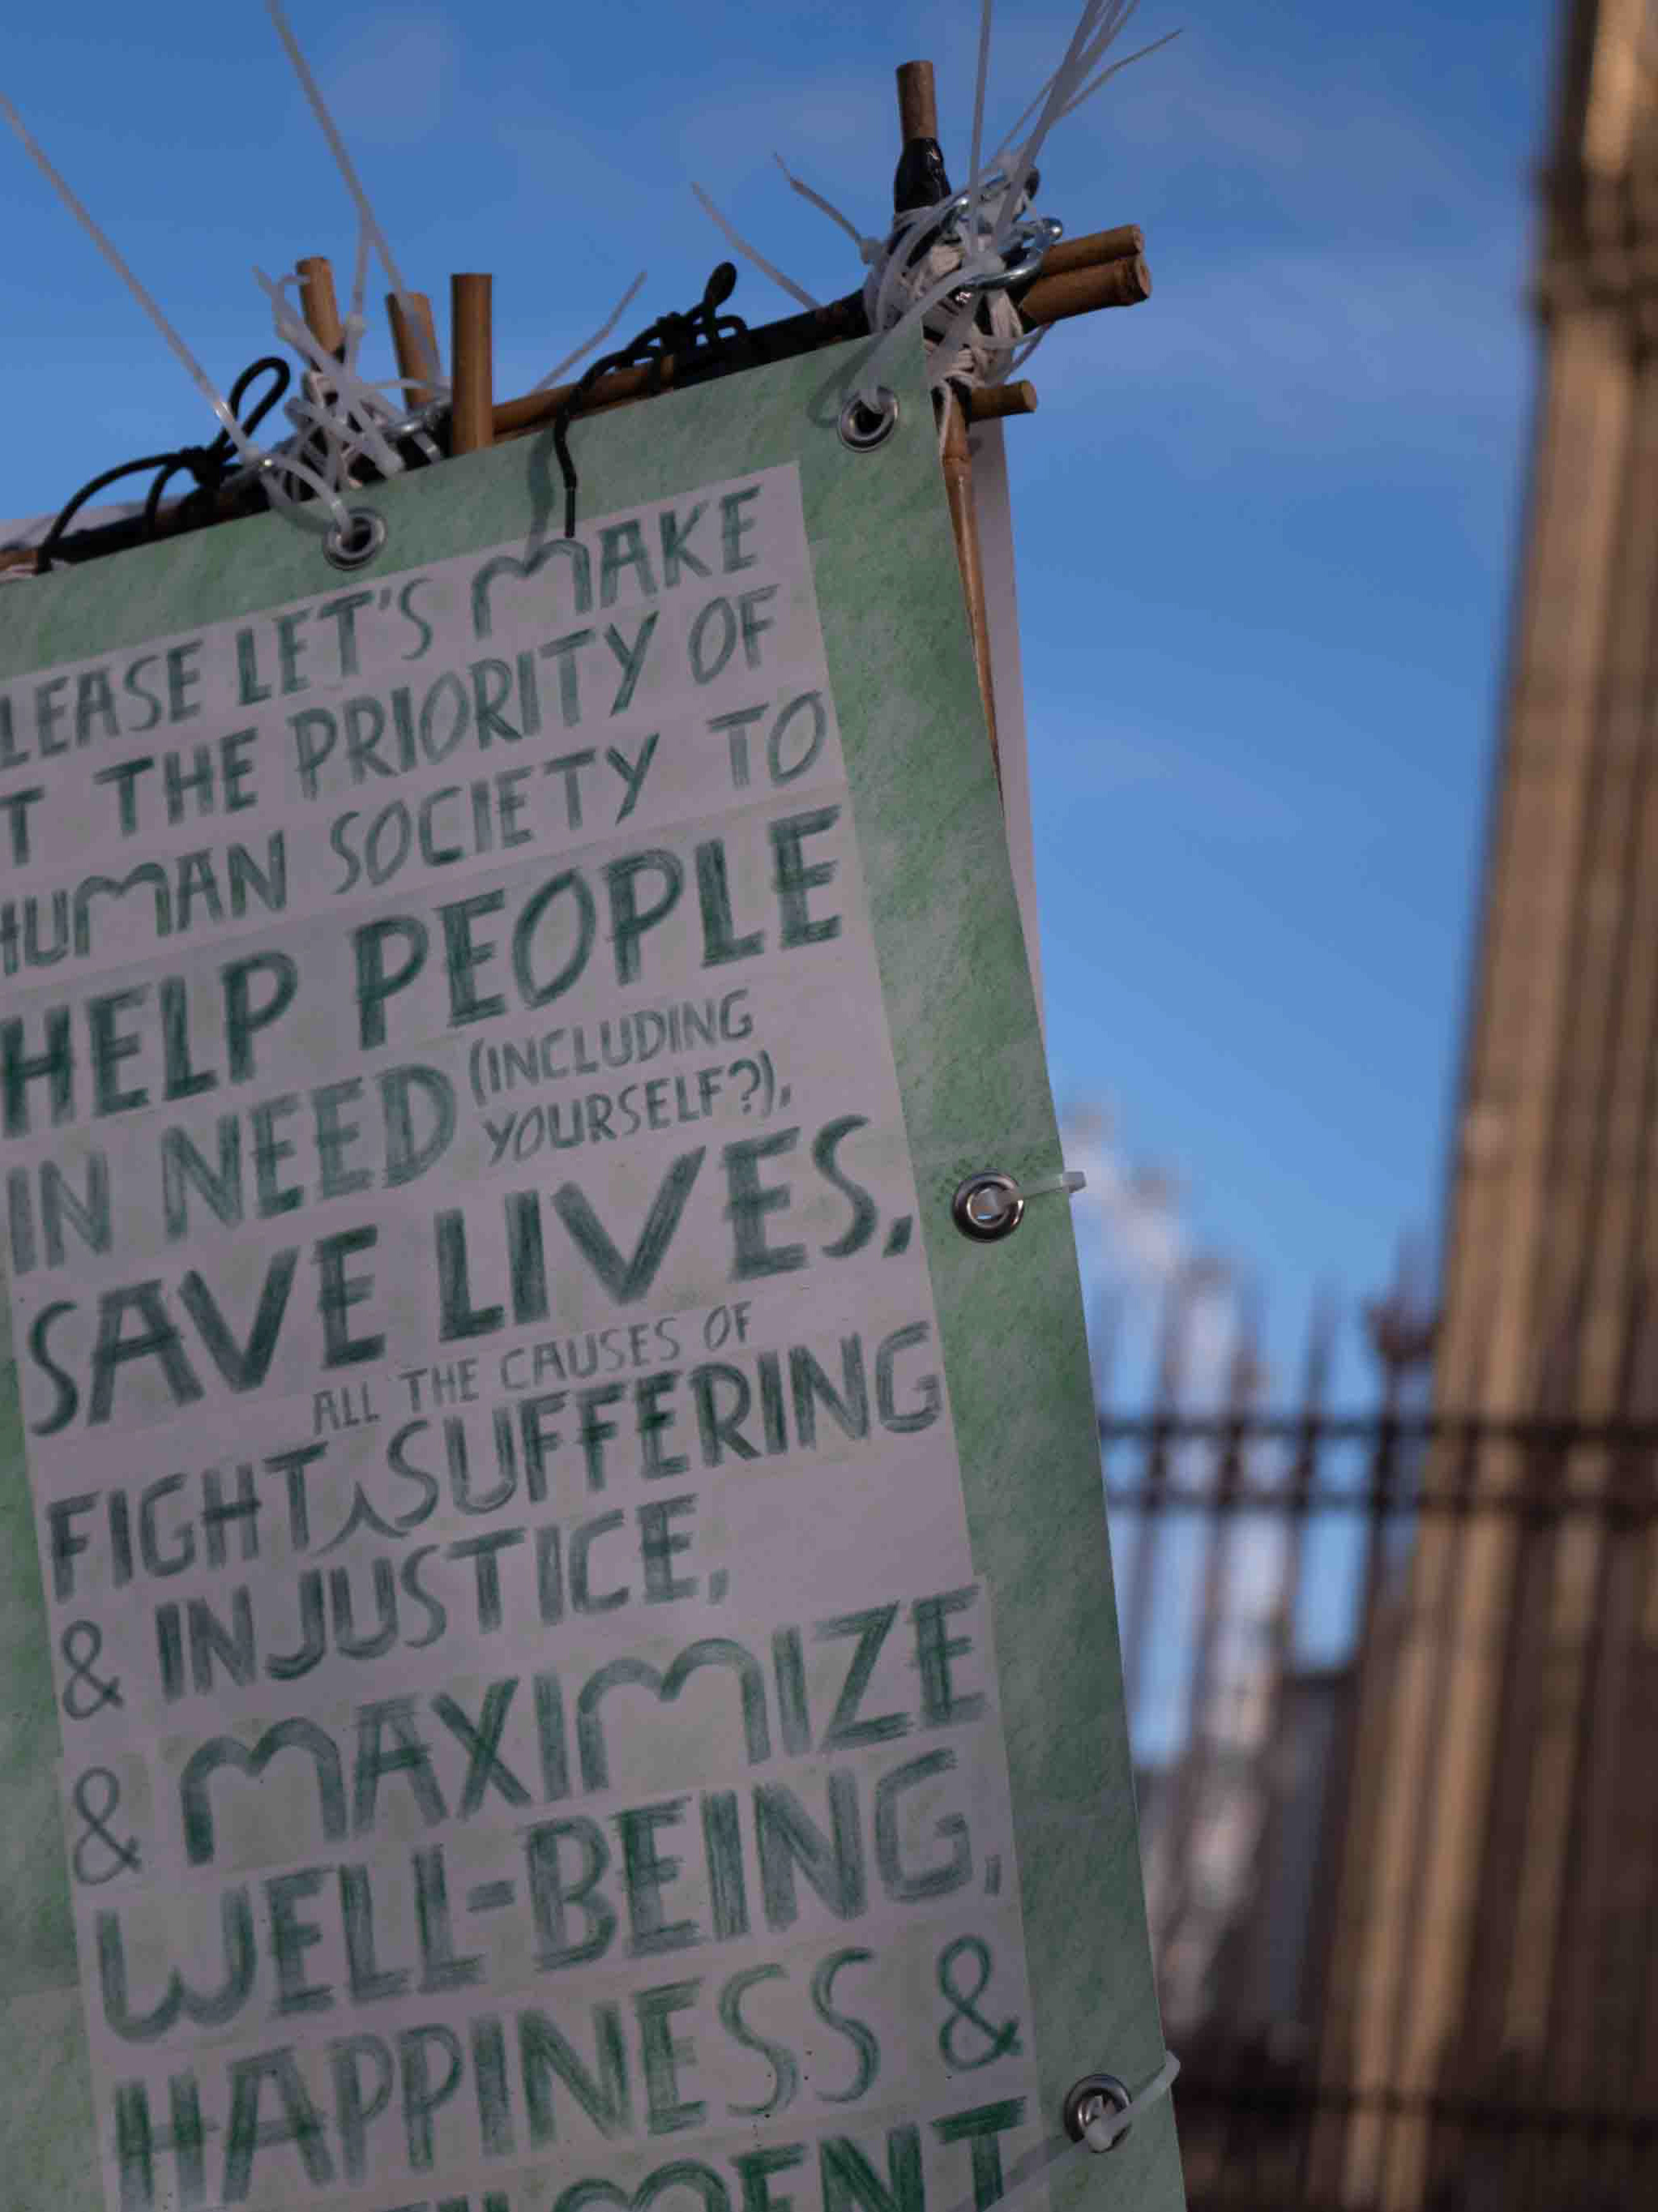 LEASE LET'S MAKE
T THE PRIORITY OF
HUMAN SOCIETY TO
HELP PEOPLE
IN NEED (INCLUDING
YOURSELF?),
SAVE LIVES,
ALL THE CAUSES OF
FIGHT SUFFERING
& INJUSTICE,
& MAXIMIZE
WELL-BEING,
HAPPINESS &